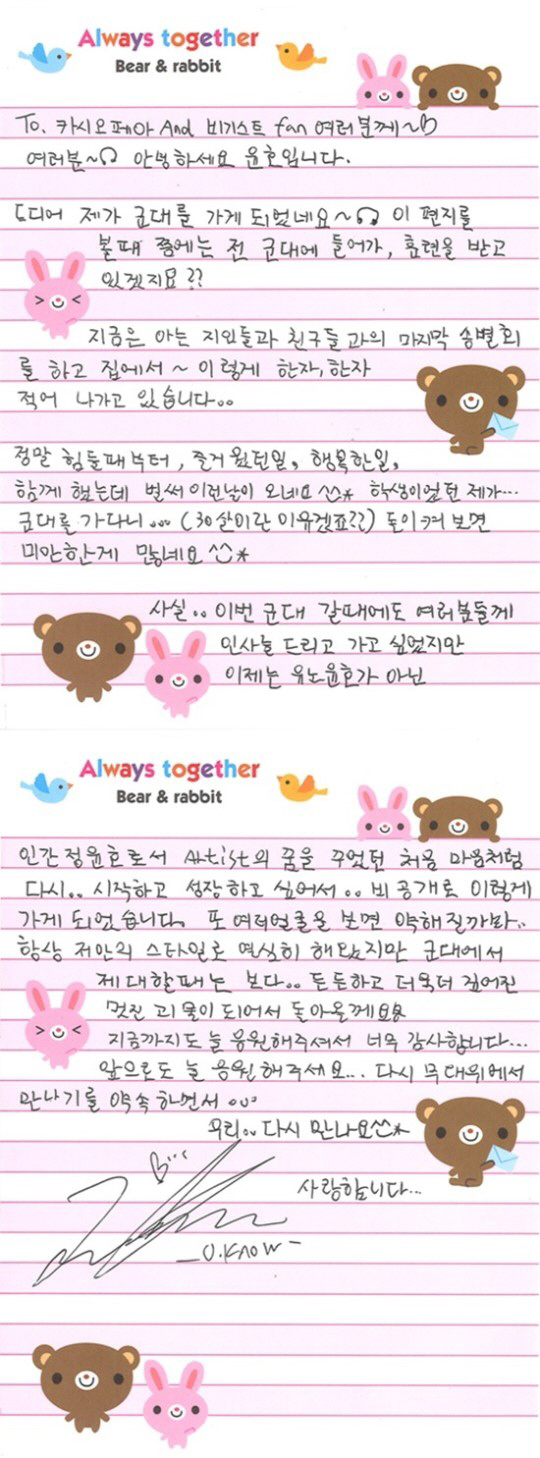 Always together
Bear & rabbit
To. 카시오페아 And 비기스트 fan 여러분께~♡
여러분~ 안녕하세요 윤호입니다.
드디어 제가 군대를 가게 되었네요~ 이 편지를
볼때 쯤에는 전 군대에 들어가, 훈련을 받고
있겠지요??
지금은 아는 지인들과 친구들과의 마지막 송별회
를 하고 집에서~ 이렇게 한자, 한자
적어 나가고 있습니다..
정말 힘들때부터, 즐거웠던일, 행복한일,
함께 했는데 벌써 이런날이 오네요 ^^* 학생이었던 제가...
군대를 가다니... (30살이란 이유겠죠??) 돌이켜 보면
미안한게 많네요 ^^*
사실.. 이번 군대 갈때에도 여러분들께
인사를 드리고 가고 싶었지만
이제는 유노윤호가 아닌
Always together
Bear & rabbit
인간 정윤호로서 Artist의 꿈을 꾸었던 처음 마음처럼
다시.. 시작하고 성장하고 싶어서.. 비공개로 이렇게
가게 되었습니다. 또 여러얼굴을 보면 약해질까봐..
항상 저만의 스타일로 열심히 해왔지만 군대에서
제대할때는 보다.. 든든하고 더욱더 깊어진
멋진 괴물이 되어서 돌아올께요
지금까지도 늘 응원해주셔서 너무 감사합니다...
앞으로도 늘 응원해주세요... 다시 무대위에서
만나기를 약속하면서...
우리.. 다시 만나요^^*
사랑합니다...
-U.Know-